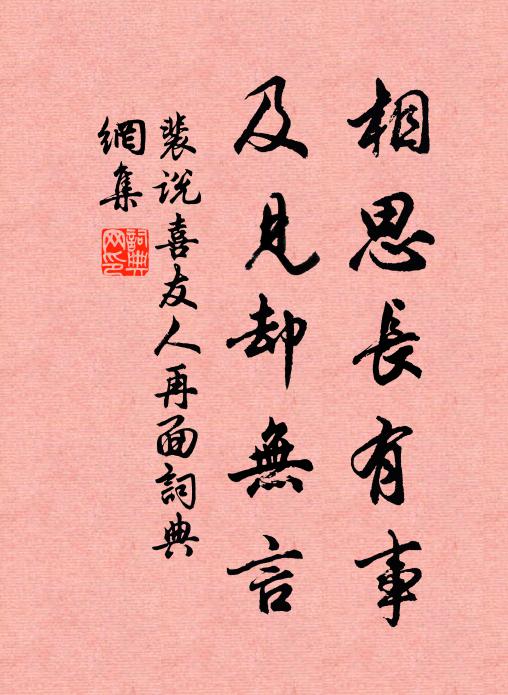 相思長有事
及見却無言
裴說喜友人再面詞典
網集
詞典網印